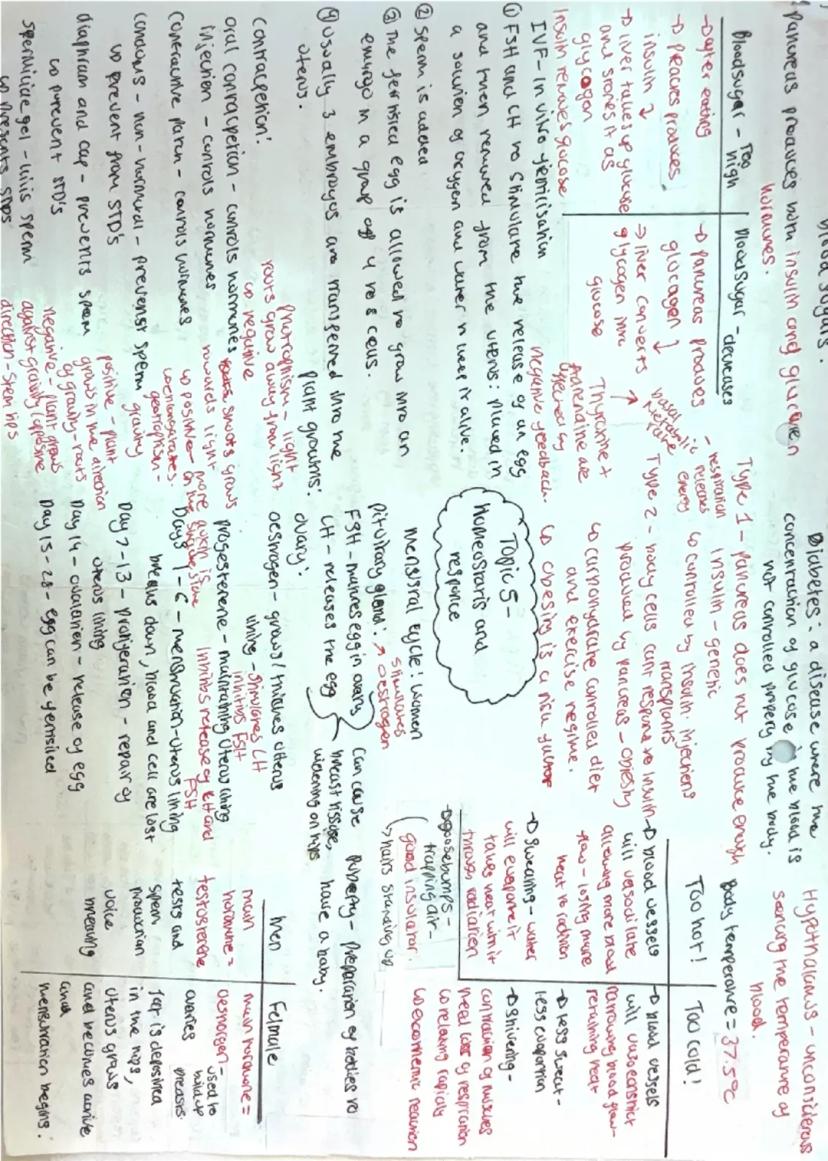 Blood sugars.
pancreas produces both insulin and glucogen
hormones.
Blood sugar - Too high
-> after eating
-> pancreas produces
insulin ↓
-> liver takes up glucose
and stores it as
glycogen
Insulin removes glucose
Blood sugar - decreases
-> pancreas produces
glucagen ↓
-> liver converts
glycogen into
glucose
Thyroxine +
Adrenaline are
negative feedback.
basal metabolic
- respiration
releases
energy
IVF - In vitro fertilisation
① FSH and LH to stimulate the release of an egg
and then removed from the uterus: placed in
a solution of oxygen and water to keep it alive.
② sperm is added
③ The fertilised egg is allowed to grow into an
embryo in a group of 4 to 8 cells.
④ usually 3 embryos are transferred into the
uterus.
contraception:
oral contraception - controls hormones
injection - controls hormones
contraceptive patch - controls hormones
condoms - non-hormonal - prevents sperm
↳ prevent from STD's
diaphram and cap - prevents sperm
↳ prevent STD's
spermicide gel - kills sperm
↳ prevents STDs
plant growths:
phototropism - light
roots grow away from light
↳ negative
shoots grows
towards light
↳ positive
more auxin is
on the shade side
geotropism -
gravity
positive - plant
grows in the direction
of gravity - roots
negative - plant grows
against gravity / opposite
direction - stem tips
Diabetes: a disease where the
concentration of glucose in the blood is
not controlled properly by the body.
Type 1 - pancreas does not produce enough
insulin - genetic
↳ controlled by insulin injections
transplants
Type 2 - body cells cant respond to insulin
produced by pancreas - objesity
↳ carbohydrate controlled diet
and exercise regime.
↳ obesing is a risk
Topic 5 -
homeostasis and
responce
menstral cycle: women
pituitary gland: stimulates oestrogen
FSH - matures egg in ovary
LH - releases the egg
ovary:
oestrogen - grows / thickes uterus
lining - stimulates LH
inhibits FSH
progesterene - maintaining uterus lining
Inhibits release of LH and
FSH
Days 1-6 - menstruation - uterus lining
breaks down, blood and cell are lost
Day 7-13 - proligeration - repair of
uterus lining
Day 14 - ovulation - release of egg
Day 15-28 - egg can be fertilised
Can cause
breast tissue,
widening on hips
Hypothalamus -
sensing the temperature of
blood.
Body temperature = 37.5°C
Too hot!
-> blood vessels
will vasodilate
allowing more blood
flow - losing more
heat to radiation
-> sweating - water
will evaporate it
takes heat with it
through radiation
Too cold!
-> blood vessels
will vasoconstrict
narrowing blood flow -
retaining heat
-> less sweat -
less evaportion
-> Shivering -
contraction of muscles
need lots of respiration
↳ relaxing rapidly
↳ exothermic reaction
-> goosebumps -
trapping air -
good insulator.
↳ hairs standing up
Puberty - preparation of bodies to
have a baby.
Men
main
hormone =
testosterone
testis and
sperm
production
voice
breaking
Felmale
main hormone =
oestrogen -
used to
build up
breasts
ovaries
fat is deposited
in the hips,
uterus grows
and becomes active
and
menstruation begins.